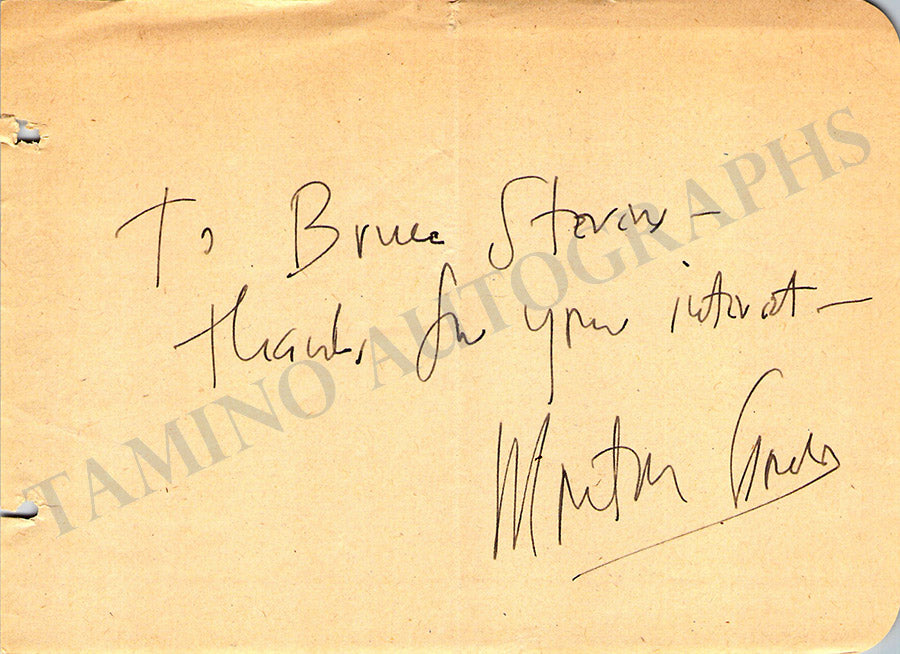 To Bruce Stevens –
thanks for your interest –
Morton Gould
TAMINO AUTOGRAPHS